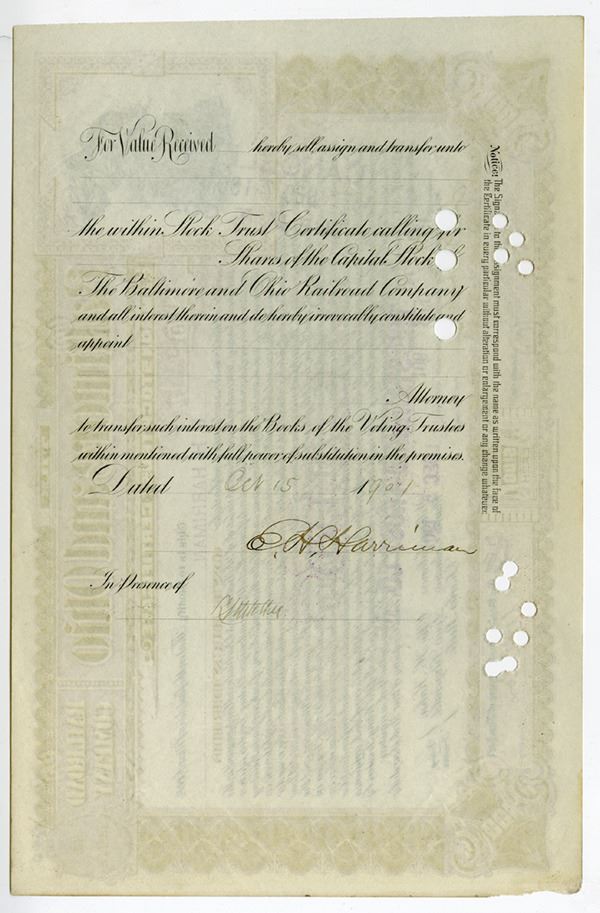 For Value Received hereby sell, assign and transfer unto
the within Stock Trust Certificate calling for
Shares of the Capital Stock
The Baltimore and Ohio Railroad Company
and all interest therein and do hereby irrevocably constitute and
appoint
Attorney
to transfer such interest on the Books of the Voting Trustees
within mentioned with full power of substitution in the premises.
Dated Oct 15 1901
E. H. Harriman
In Presence of
Notice: The to the assignment must correspond with the name as written upon the face of
the Certificate in every particular without alteration or enlargement or any change whatever.